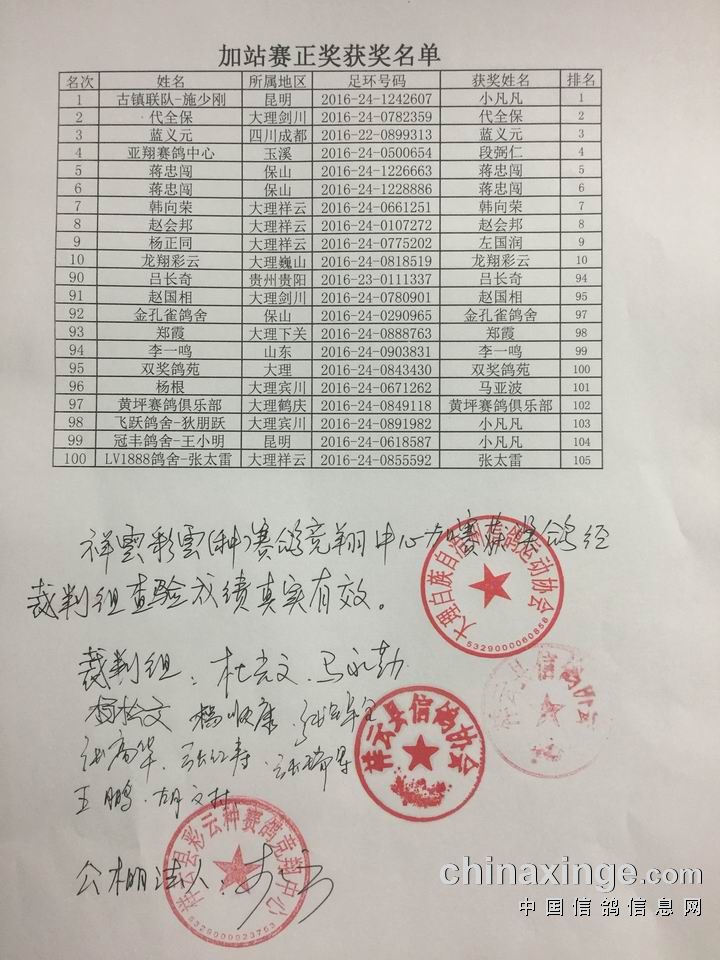 加站赛正奖获奖名单
名次 姓名 所属地区 足环号码 获奖姓名 排名
1 古镇联队-施少刚 昆明 2016-24-1242607 小凡凡 1
2 代全保 大理剑川 2016-24-0782359 代全保 2
3 蓝义元 四川成都 2016-22-0899313 蓝义元 3
4 亚翔赛鸽中心 玉溪 2016-24-0500654 段弼仁 4
5 蒋忠闯 保山 2016-24-1226663 蒋忠闯 5
6 蒋忠闯 保山 2016-24-1228886 蒋忠闯 6
7 韩向荣 大理祥云 2016-24-0661251 韩向荣 7
8 赵会邦 大理祥云 2016-24-0107272 赵会邦 8
9 杨正同 大理祥云 2016-24-0775202 左国润 9
10 龙翔彩云 大理巍山 2016-24-0818519 龙翔彩云 10
90 吕长奇 贵州贵阳 2016-23-0111337 吕长奇 94
91 赵国相 大理剑川 2016-24-0780901 赵国相 95
92 金孔雀鸽舍 保山 2016-24-0290965 金孔雀鸽舍 97
93 郑霞 大理下关 2016-24-0888763 郑霞 98
94 李一鸣 山东 2016-24-0903831 李一鸣 99
95 双奖鸽苑 大理 2016-24-0843430 双奖鸽苑 100
96 杨根 大理宾川 2016-24-0671262 马亚波 101
97 黄坪赛鸽俱乐部 大理鹤庆 2016-24-0849118 黄坪赛鸽俱乐部 102
98 飞跃鸽舍-狄朋跃 大理宾川 2016-24-0891982 小凡凡 103
99 冠丰鸽舍-王小明 昆明 2016-24-0618587 小凡凡 104
100 LV1888鸽舍-张太雷 大理祥云 2016-24-0855592 张太雷 105
祥雲彩雲(种)赛鸽竞翔中心加赛获奖鸽经
裁判组查验成绩真实有效。
大理白族自治州信鸽运动协会
5329000060856
裁判组：杜光文 马永勤
杨顺康
祥云县信鸽协会
王鹏
祥云县彩云种赛鸽竞翔中心
5329000023753
公棚法人：
chinaxinge.com
中国信鸽信息网